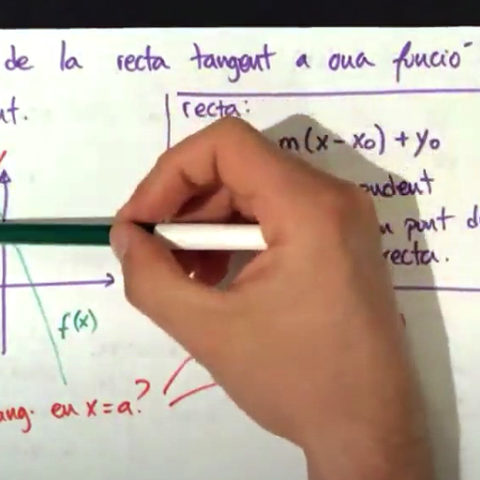 de la recta tangent a una funció
recta:
m(x-x₀) + y₀
punt d
recta.
f(x)
en x=a?